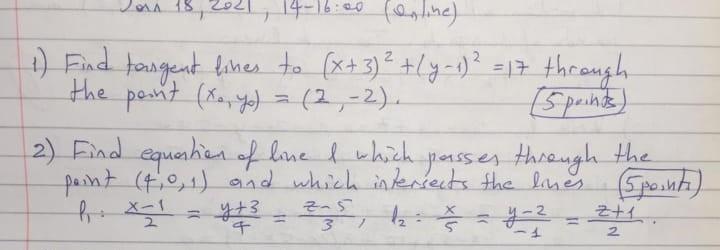 Jan 18, 2021, 14-16:00 (Online)
1) Find tangent lines to (x+3)² + (y-1)² = 17 through
the point (x₀, y₀) = (2, -2). (5 points)
2) Find equation of line l which passes through the
point (4,0,1) and which intersects the lines (5 points)
l₁: x-1/2 = y+3/4 = z-5/3, l₂: x/5 = y-2/-1 = z+1/2.